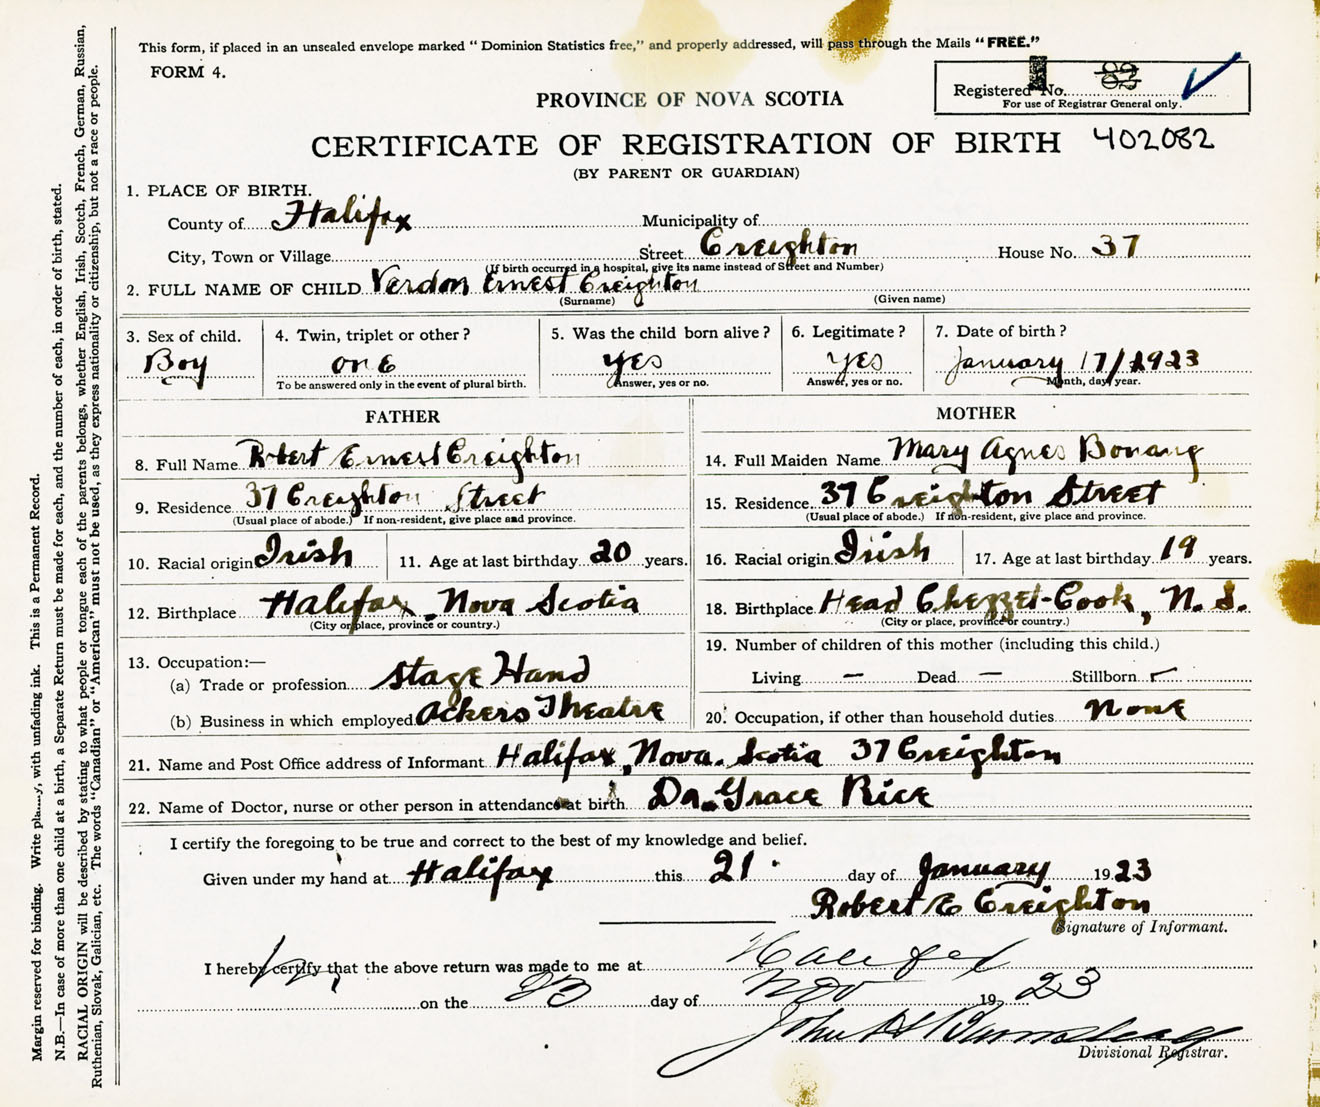 This form, if placed in an unsealed envelope marked "Dominion Statistics free," and properly addressed, will pass through the Mails "FREE."
FORM 4.
Registered No.
For use of Registrar General only.
PROVINCE OF NOVA SCOTIA
CERTIFICATE OF REGISTRATION OF BIRTH 402082
(BY PARENT OR GUARDIAN)
1. PLACE OF BIRTH.
County of Halifax Municipality of
City, Town or Village Street Creighton House No. 37
(If birth occurred in a hospital, give its name instead of Street and Number)
2. FULL NAME OF CHILD Verdon Ernest Creighton
(Surname) (Given name)
3. Sex of child. 4. Twin, triplet or other? 5. Was the child born alive? 6. Legitimate? 7. Date of birth?
Boy one yes yes January 17/1923
To be answered only in the event of plural birth. Answer, yes or no. Answer, yes or no. Month, day, year.
FATHER
8. Full Name Robert Ernest Creighton
9. Residence 37 Creighton Street
(Usual place of abode.) If non-resident, give place and province.
10. Racial origin Irish 11. Age at last birthday 20 years.
12. Birthplace Halifax, Nova Scotia
(City or place, province or country.)
13. Occupation:—
(a) Trade or profession Stage Hand
(b) Business in which employed Ackers Theatre
MOTHER
14. Full Maiden Name Mary Agnes Bonang
15. Residence 37 Creighton Street
(Usual place of abode.) If non-resident, give place and province.
16. Racial origin Irish 17. Age at last birthday 19 years.
18. Birthplace Head Chezzet-Cook, N. S.
(City or place, province or country.)
19. Number of children of this mother (including this child.)
Living — Dead — Stillborn
20. Occupation, if other than household duties None
21. Name and Post Office address of Informant Halifax, Nova. Scotia 37 Creighton
22. Name of Doctor, nurse or other person in attendance at birth Dr. Grace Rice
I certify the foregoing to be true and correct to the best of my knowledge and belief.
Given under my hand at Halifax this 21 day of January 1923
Robert E Creighton
Signature of Informant.
I hereby certify that the above return was made to me at Halifax
on the 23 day of Nov 1923
John H
Divisional Registrar.
Margin reserved for binding. Write with unfading ink. This is a Permanent Record.
N.B.—In case of more than one child at a birth, a Separate Return must be made for each, and the number of each, in order of birth, stated.
RACIAL ORIGIN will be described by stating to what people or tongue each of the parents belongs, whether English, Irish, Scotch, French, German, Russian,
Ruthenian, Slovak, Galician, etc. The words "Canadian" or "American" must not be used, as they express nationality or citizenship, but not a race or people.